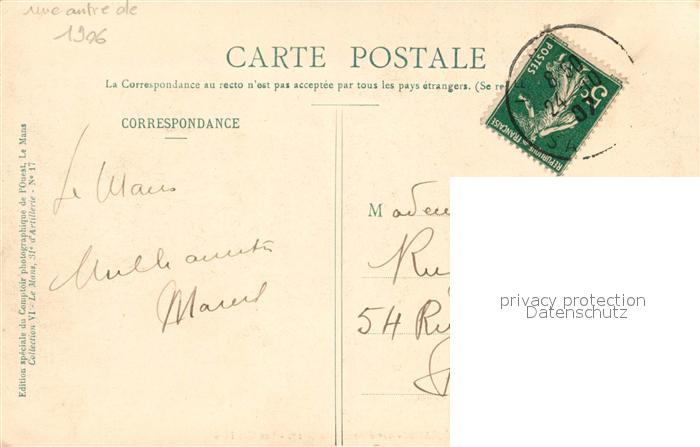 une autre de
1906
CARTE POSTALE
La Correspondance au recto n'est pas acceptée par tous les pays étrangers. (Se re
CORRESPONDANCE
Le Mans
Marcel
Edition spéciale du Comptoir photographique de l'Ouest, Le Mans
Collection VI - Le Mans, 31e d'Artillerie - No 17
POSTES
5c
REPUBLIQUE FRANÇAISE
8
24
07
M adem
Ru
54 Ru
privacy protection
Datenschutz